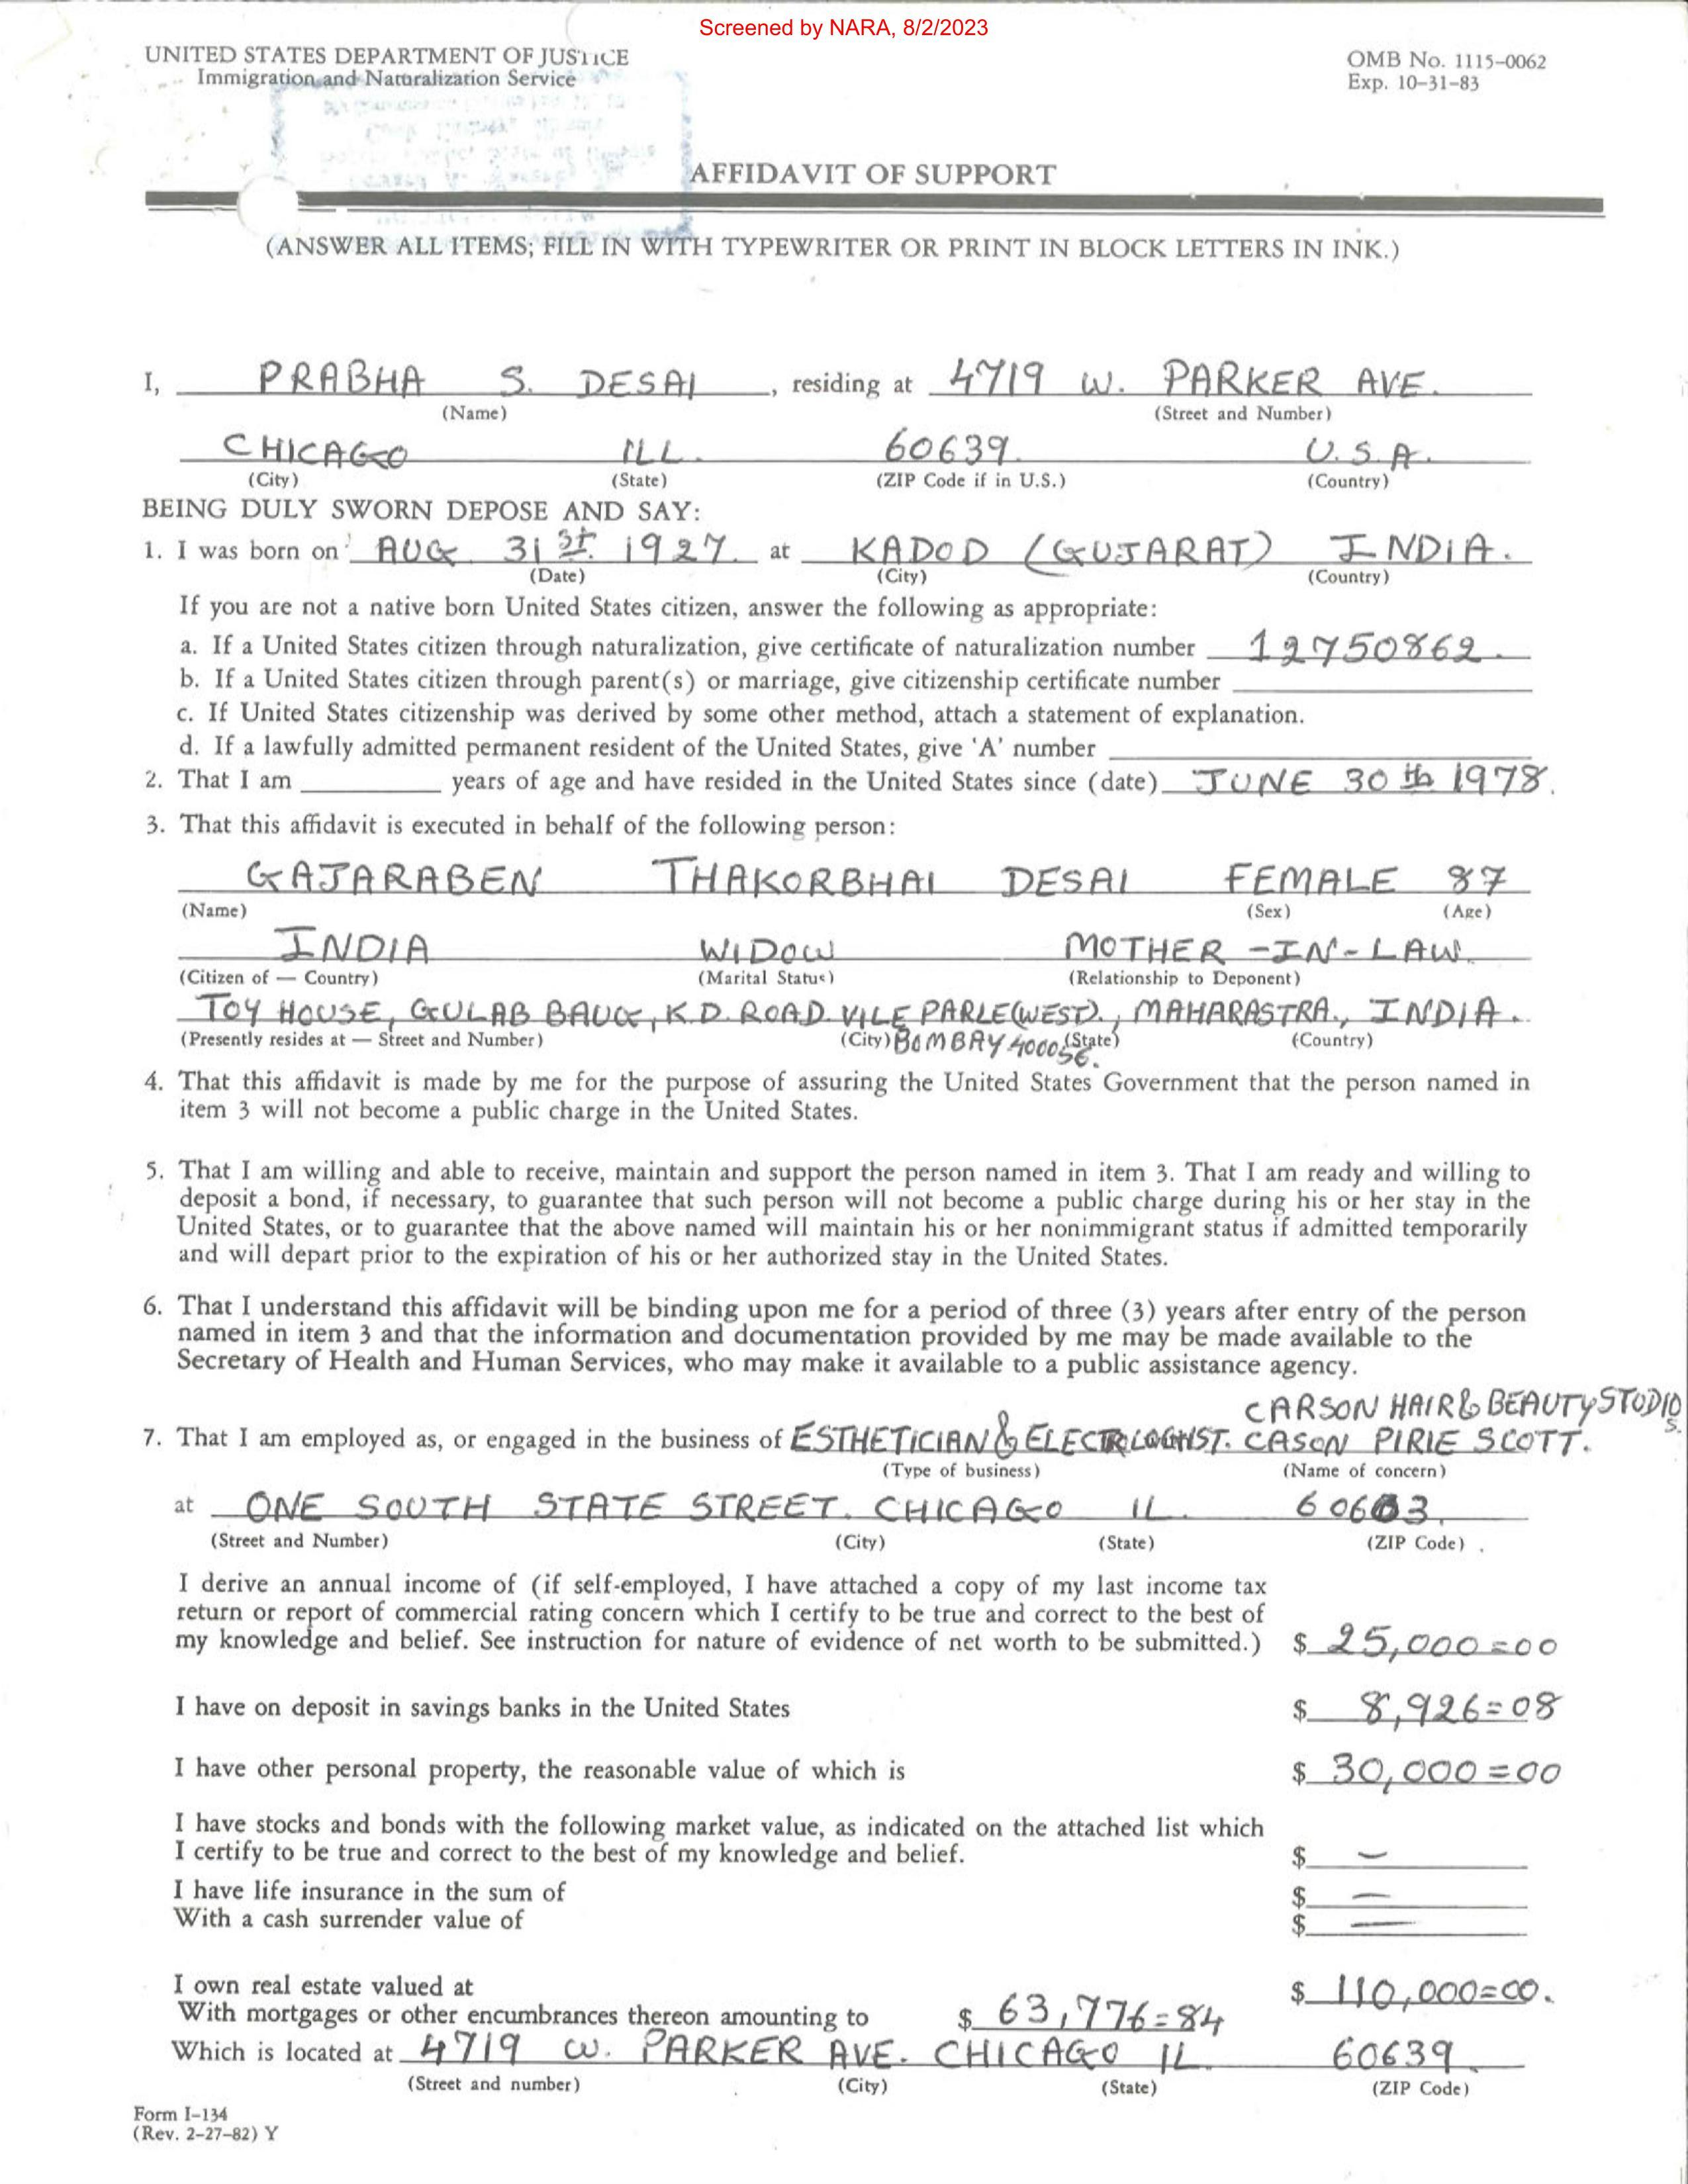 Screened by NARA, 8/2/2023
UNITED STATES DEPARTMENT OF JUSTICE
OMB No. 1115-0062
Immigration and Naturalization Service
Exp. 10-31-83
AFFIDAVIT OF SUPPORT
(ANSWER ALL ITEMS; FILL IN WITH TYPEWRITER OR PRINT IN BLOCK LETTERS IN INK.)
I, PRABHA S. DESAI, residing at 4719 W. PARKER AVE.
(Name) (Street and Number)
CHICAGO ILL. 60639. U.S.A.
(City) (State) (ZIP Code if in U.S.) (Country)
BEING DULY SWORN DEPOSE AND SAY:
1. I was born on AUG 31st. 1927. at KADOD (GUJARAT) INDIA.
(Date) (City) (Country)
If you are not a native born United States citizen, answer the following as appropriate:
a. If a United States citizen through naturalization, give certificate of naturalization number 12750862.
b. If a United States citizen through parent(s) or marriage, give citizenship certificate number
c. If United States citizenship was derived by some other method, attach a statement of explanation.
d. If a lawfully admitted permanent resident of the United States, give 'A' number
2. That I am years of age and have resided in the United States since (date) JUNE 30th 1978.
3. That this affidavit is executed in behalf of the following person:
GAJARABEN THAKORBHAI DESAI FEMALE 87
(Name) (Sex) (Age)
INDIA WIDOW MOTHER-IN-LAW.
(Citizen of — Country) (Marital Status) (Relationship to Deponent)
TOY HOUSE, GULAB BAUG, K.D. ROAD. VILE PARLE(WEST)., MAHARASTRA., INDIA.
(Presently resides at — Street and Number) (City) BOMBAY 400056. (State) (Country)
4. That this affidavit is made by me for the purpose of assuring the United States Government that the person named in
item 3 will not become a public charge in the United States.
5. That I am willing and able to receive, maintain and support the person named in item 3. That I am ready and willing to
deposit a bond, if necessary, to guarantee that such person will not become a public charge during his or her stay in the
United States, or to guarantee that the above named will maintain his or her nonimmigrant status if admitted temporarily
and will depart prior to the expiration of his or her authorized stay in the United States.
6. That I understand this affidavit will be binding upon me for a period of three (3) years after entry of the person
named in item 3 and that the information and documentation provided by me may be made available to the
Secretary of Health and Human Services, who may make it available to a public assistance agency.
CARSON HAIR & BEAUTY STODIOS.
7. That I am employed as, or engaged in the business of ESTHETICIAN & ELECTROLOGIST. CASON PIRIE SCOTT.
(Type of business) (Name of concern)
at ONE SOUTH STATE STREET. CHICAGO IL. 60603.
(Street and Number) (City) (State) (ZIP Code)
I derive an annual income of (if self-employed, I have attached a copy of my last income tax
return or report of commercial rating concern which I certify to be true and correct to the best of
my knowledge and belief. See instruction for nature of evidence of net worth to be submitted.) $ 25,000=00
I have on deposit in savings banks in the United States $ 8,926=08
I have other personal property, the reasonable value of which is $ 30,000=00
I have stocks and bonds with the following market value, as indicated on the attached list which
I certify to be true and correct to the best of my knowledge and belief. $ —
I have life insurance in the sum of $ —
With a cash surrender value of $ —
I own real estate valued at $ 110,000=00.
With mortgages or other encumbrances thereon amounting to $ 63,776=84
Which is located at 4719 W. PARKER AVE. CHICAGO IL. 60639.
(Street and number) (City) (State) (ZIP Code)
Form I-134
(Rev. 2-27-82) Y